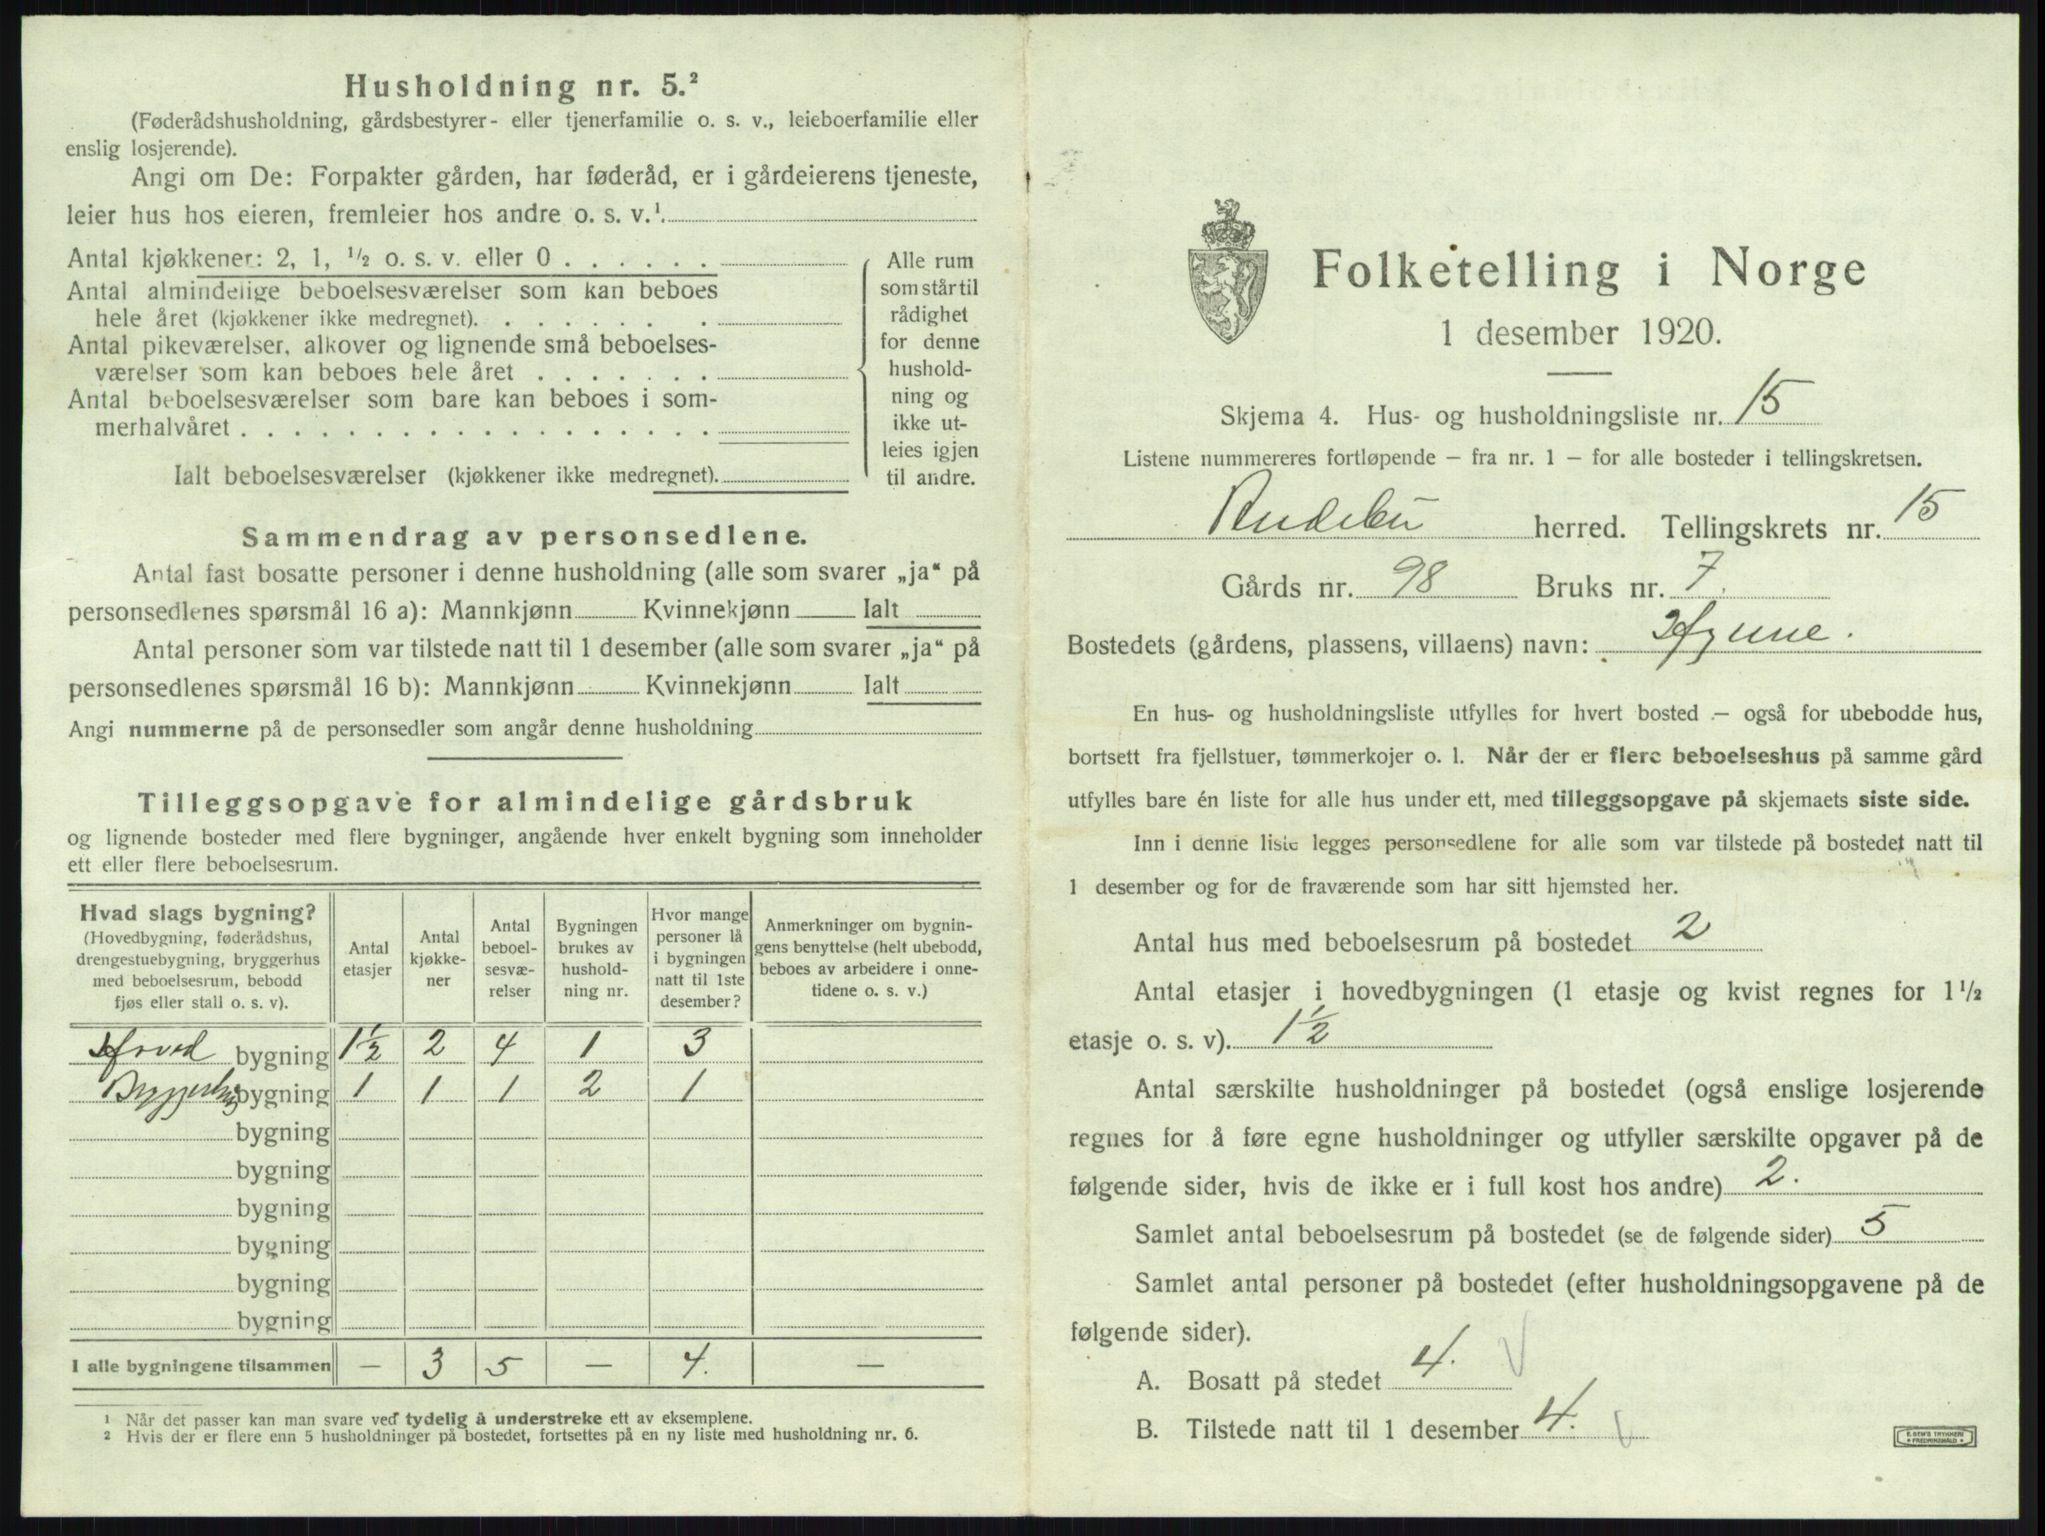 Husholdning nr. 5.²
(Føderådshusholdning, gårdsbestyrer- eller tjenerfamilie o. s. v., leieboerfamilie eller
enslig losjerende).
Angi om De: Forpakter gården, har føderåd, er i gårdeierens tjeneste,
leier hus hos eieren, fremleier hos andre o. s. v.¹
Antal kjøkkener: 2, 1, ½ o. s. v. eller 0 . . . . . .
Antal almindelige beboelsesværelser som kan beboes
hele året (kjøkkener ikke medregnet). . . . . . . .
Antal pikeværelser, alkover og lignende små beboelses-
værelser som kan beboes hele året . . . . . . .
Antal beboelsesværelser som bare kan beboes i som-
merhalvåret . . . . . . . . . . . . . . . . . .
Ialt beboelsesværelser (kjøkkener ikke medregnet).
Alle rum
som står til
rådighet
for denne
hushold-
ning og
ikke ut-
leies igjen
til andre.
Sammendrag av personsedlene.
Antal fast bosatte personer i denne husholdning (alle som svarer „ja“ på
personsedlenes spørsmål 16 a): Mannkjønn Kvinnekjønn Ialt
Antal personer som var tilstede natt til 1 desember (alle som svarer „ja“ på
personsedlenes spørsmål 16 b): Mannkjønn Kvinnekjønn Ialt
Angi nummerne på de personsedler som angår denne husholdning
Tilleggsopgave for almindelige gårdsbruk
og lignende bosteder med flere bygninger, angående hver enkelt bygning som inneholder
ett eller flere beboelsesrum.
Hvad slags bygning?
(Hovedbygning, føderådshus,
drengestuebygning, bryggerhus
med beboelsesrum, bebodd
fjøs eller stall o. s. v).
Antal
etasjer
Antal
kjøkke-
ner
Antal
beboel-
sesvæ-
relser
Bygningen
brukes av
hushold-
ning nr.
Hvor mange
personer lå
i bygningen
natt til 1ste
desember?
Anmerkninger om bygnin-
gens benyttelse (helt ubebodd,
beboes av arbeidere i onne-
tidene o. s. v.)
Hoved bygning 1½ 2 4 1 3
Bryggerhus bygning 1 1 1 2 1
bygning
bygning
bygning
bygning
bygning
bygning
I alle bygningene tilsammen — 3 5 — 4. —
¹ Når det passer kan man svare ved tydelig å understreke ett av eksemplene.
² Hvis der er flere enn 5 husholdninger på bostedet, fortsettes på en ny liste med husholdning nr. 6.
Folketelling i Norge
1 desember 1920.
Skjema 4. Hus- og husholdningsliste nr. 15
Listene nummereres fortløpende — fra nr. 1 — for alle bosteder i tellingskretsen.
Andebu herred. Tellingskrets nr. 15
Gårds nr. 98 Bruks nr. 7.
Bostedets (gårdens, plassens, villaens) navn: Hynne.
En hus- og husholdningsliste utfylles for hvert bosted — også for ubebodde hus,
bortsett fra fjellstuer, tømmerkojer o. l. Når der er flere beboelseshus på samme gård
utfylles bare én liste for alle hus under ett, med tilleggsopgave på skjemaets siste side.
Inn i denne liste legges personsedlene for alle som var tilstede på bostedet natt til
1 desember og for de fraværende som har sitt hjemsted her.
Antal hus med beboelsesrum på bostedet 2
Antal etasjer i hovedbygningen (1 etasje og kvist regnes for 1½
etasje o. s. v). 1½
Antal særskilte husholdninger på bostedet (også enslige losjerende
regnes for å føre egne husholdninger og utfyller særskilte opgaver på de
følgende sider, hvis de ikke er i full kost hos andre) 2.
Samlet antal beboelsesrum på bostedet (se de følgende sider) 5
Samlet antal personer på bostedet (efter husholdningsopgavene på de
følgende sider).
A. Bosatt på stedet 4.
B. Tilstede natt til 1 desember 4.
E. SEM'S TRYKKERI
FREDRIKSHALD